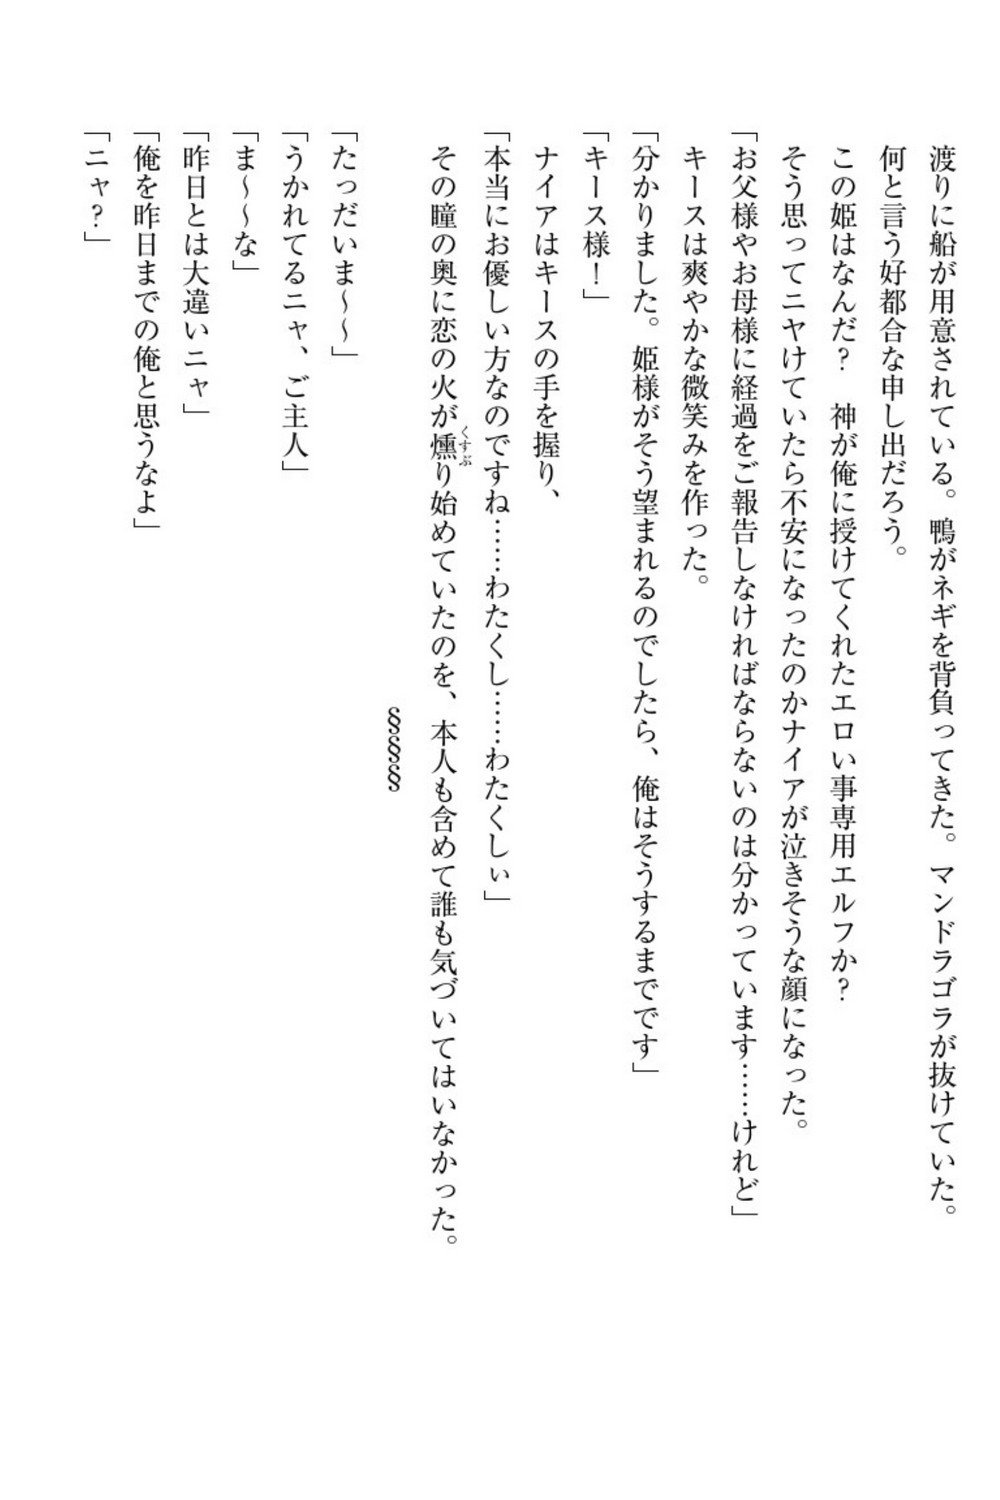 渡りに船が用意されている。鴨がネギを背負ってきた。マンドラゴラが抜けていた。
何と言う好都合な申し出だろう。
この姫はなんだ？　神が俺に授けてくれたエロい事専用エルフか？
そう思ってニヤけていたら不安になったのかナイアが泣きそうな顔になった。
「お父様やお母様に経過をご報告しなければならないのは分かっています……けれど」
キースは爽やかな微笑みを作った。
「分かりました。姫様がそう望まれるのでしたら、俺はそうするまでです」
「キース様！」
ナイアはキースの手を握り、
「本当にお優しい方なのですね……わたくし……わたくしぃ」
その瞳の奥に恋の火が燻り始めていたのを、本人も含めて誰も気づいてはいなかった。
くすぶ
§§§
「たっだいま～～」
「うかれてるニャ、ご主人」
「ま～～な」
「昨日とは大違いニャ」
「俺を昨日までの俺と思うなよ」
「ニャ？」